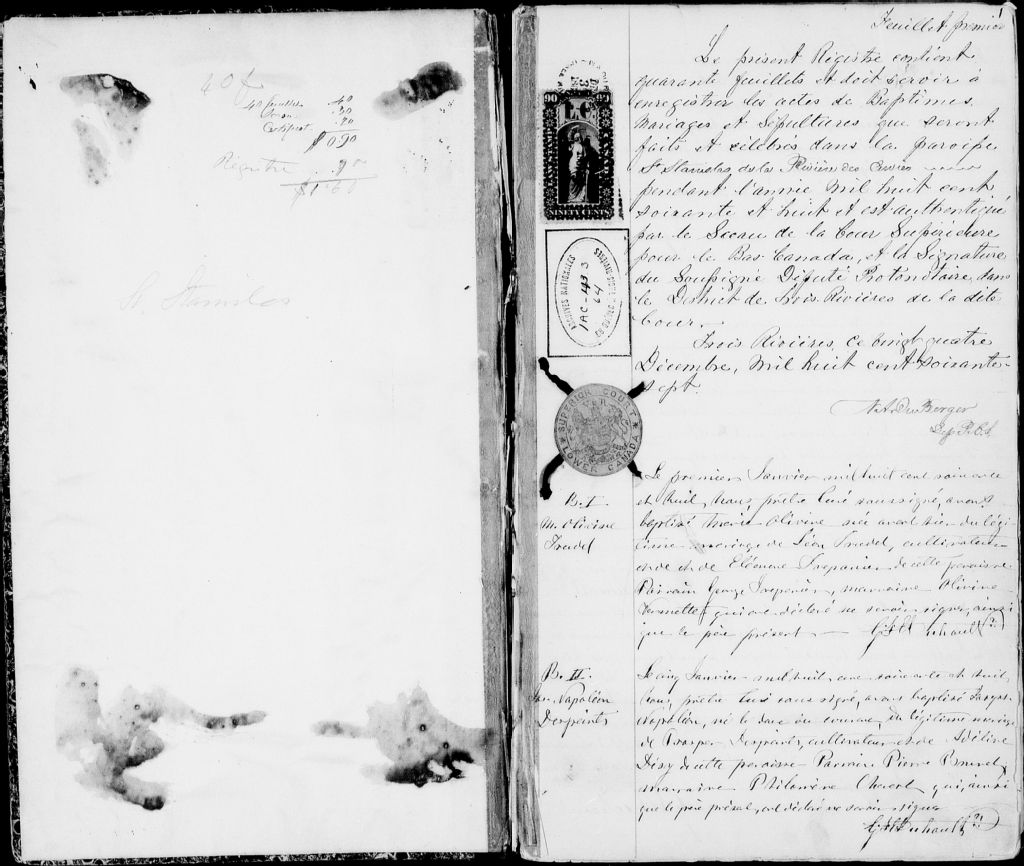 40 f
40 feuillets 40
.30
.20
$ 0.90
Registre .90
St Stanislas
1
Feuillet premier
Le présent Régistre contient
quarante feuillets et doit servir à
enregistrer les actes de Baptêmes
Mariages et Sépultures qui seront
faits et célébrés dans la paroisse
St Stanislas de la Rivière des Envies
pendant l'année Mil huit cent
soixante et huit et est authentiqué
par le Sceau de la Cour Supérieure
pour le Bas Canada, et la Signature
du Soussigné Député Protonotaire, dans
le District de Trois-Rivières de la dite
Cour.
Trois Rivières, ce vingt quatre
Décembre, Mil huit cent soixante-
sept.
Dep. P.C.S.
90 90
L.C.
NINETY CENTS
ARCHIVES NATIONALES
SUPERIOR COURT
LOWER CANADA
B. I
M. Olivine
Trudel
Le premier Janvier mil huit cent soixante
et huit, nous, prêtre Curé soussigné, avons
baptisé Marie Olivine née avant hier du légi-
time mariage de Léon Trudel, cultivateur
et de Eléonore Trepanier de cette paroisse
Parrain George Trepanier, marraine Olivine
qui ont déclaré ne savoir signer, ainsi
que le père présent
B. II.
Jos. Napoléon
Le cinq Janvier mil huit cent soixante et huit,
Nous, prêtre Curé soussigné, avons baptisé Joseph
Napoléon, né le du courant, du légitime mariage
de Prosper cultivateur et de Adéline
de cette paroisse Parrain Pierre
marraine Philomène qui, ainsi
que le père présent, ont déclaré ne savoir signer